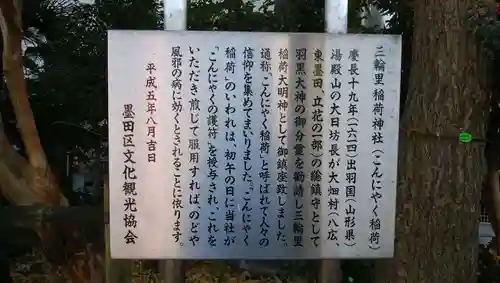 三輪里稲荷神社(こんにゃく稲荷)
慶長十九年(一六一四)出羽国(山形県)
湯殿山の大日坊長が大畑村(八広、
東墨田、立花の一部)の総鎮守として
羽黒大神の御分霊を勧請し三輪里
稲荷大明神として御鎮座致しました。
通称“こんにゃく稲荷”と呼ばれて人々の
信仰を集めてまいりました。“こんにゃく
稲荷”のいわれは、初午の日に当社が
“こんにゃくの護符”を授与され、これを
いただき煎じて服用すれば、のどや
風邪の病に効くとされることに依ります。
平成五年八月吉日
墨田区文化観光協会